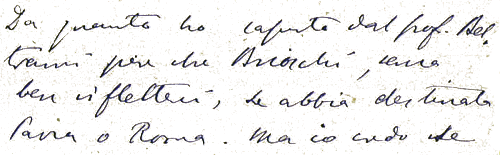 Da quanto ho saputo dal prof. Bel,
trami pare che Brioschi, senza
ben riflettervi, la abbia destinata
Pavia o Roma. Ma io credo che